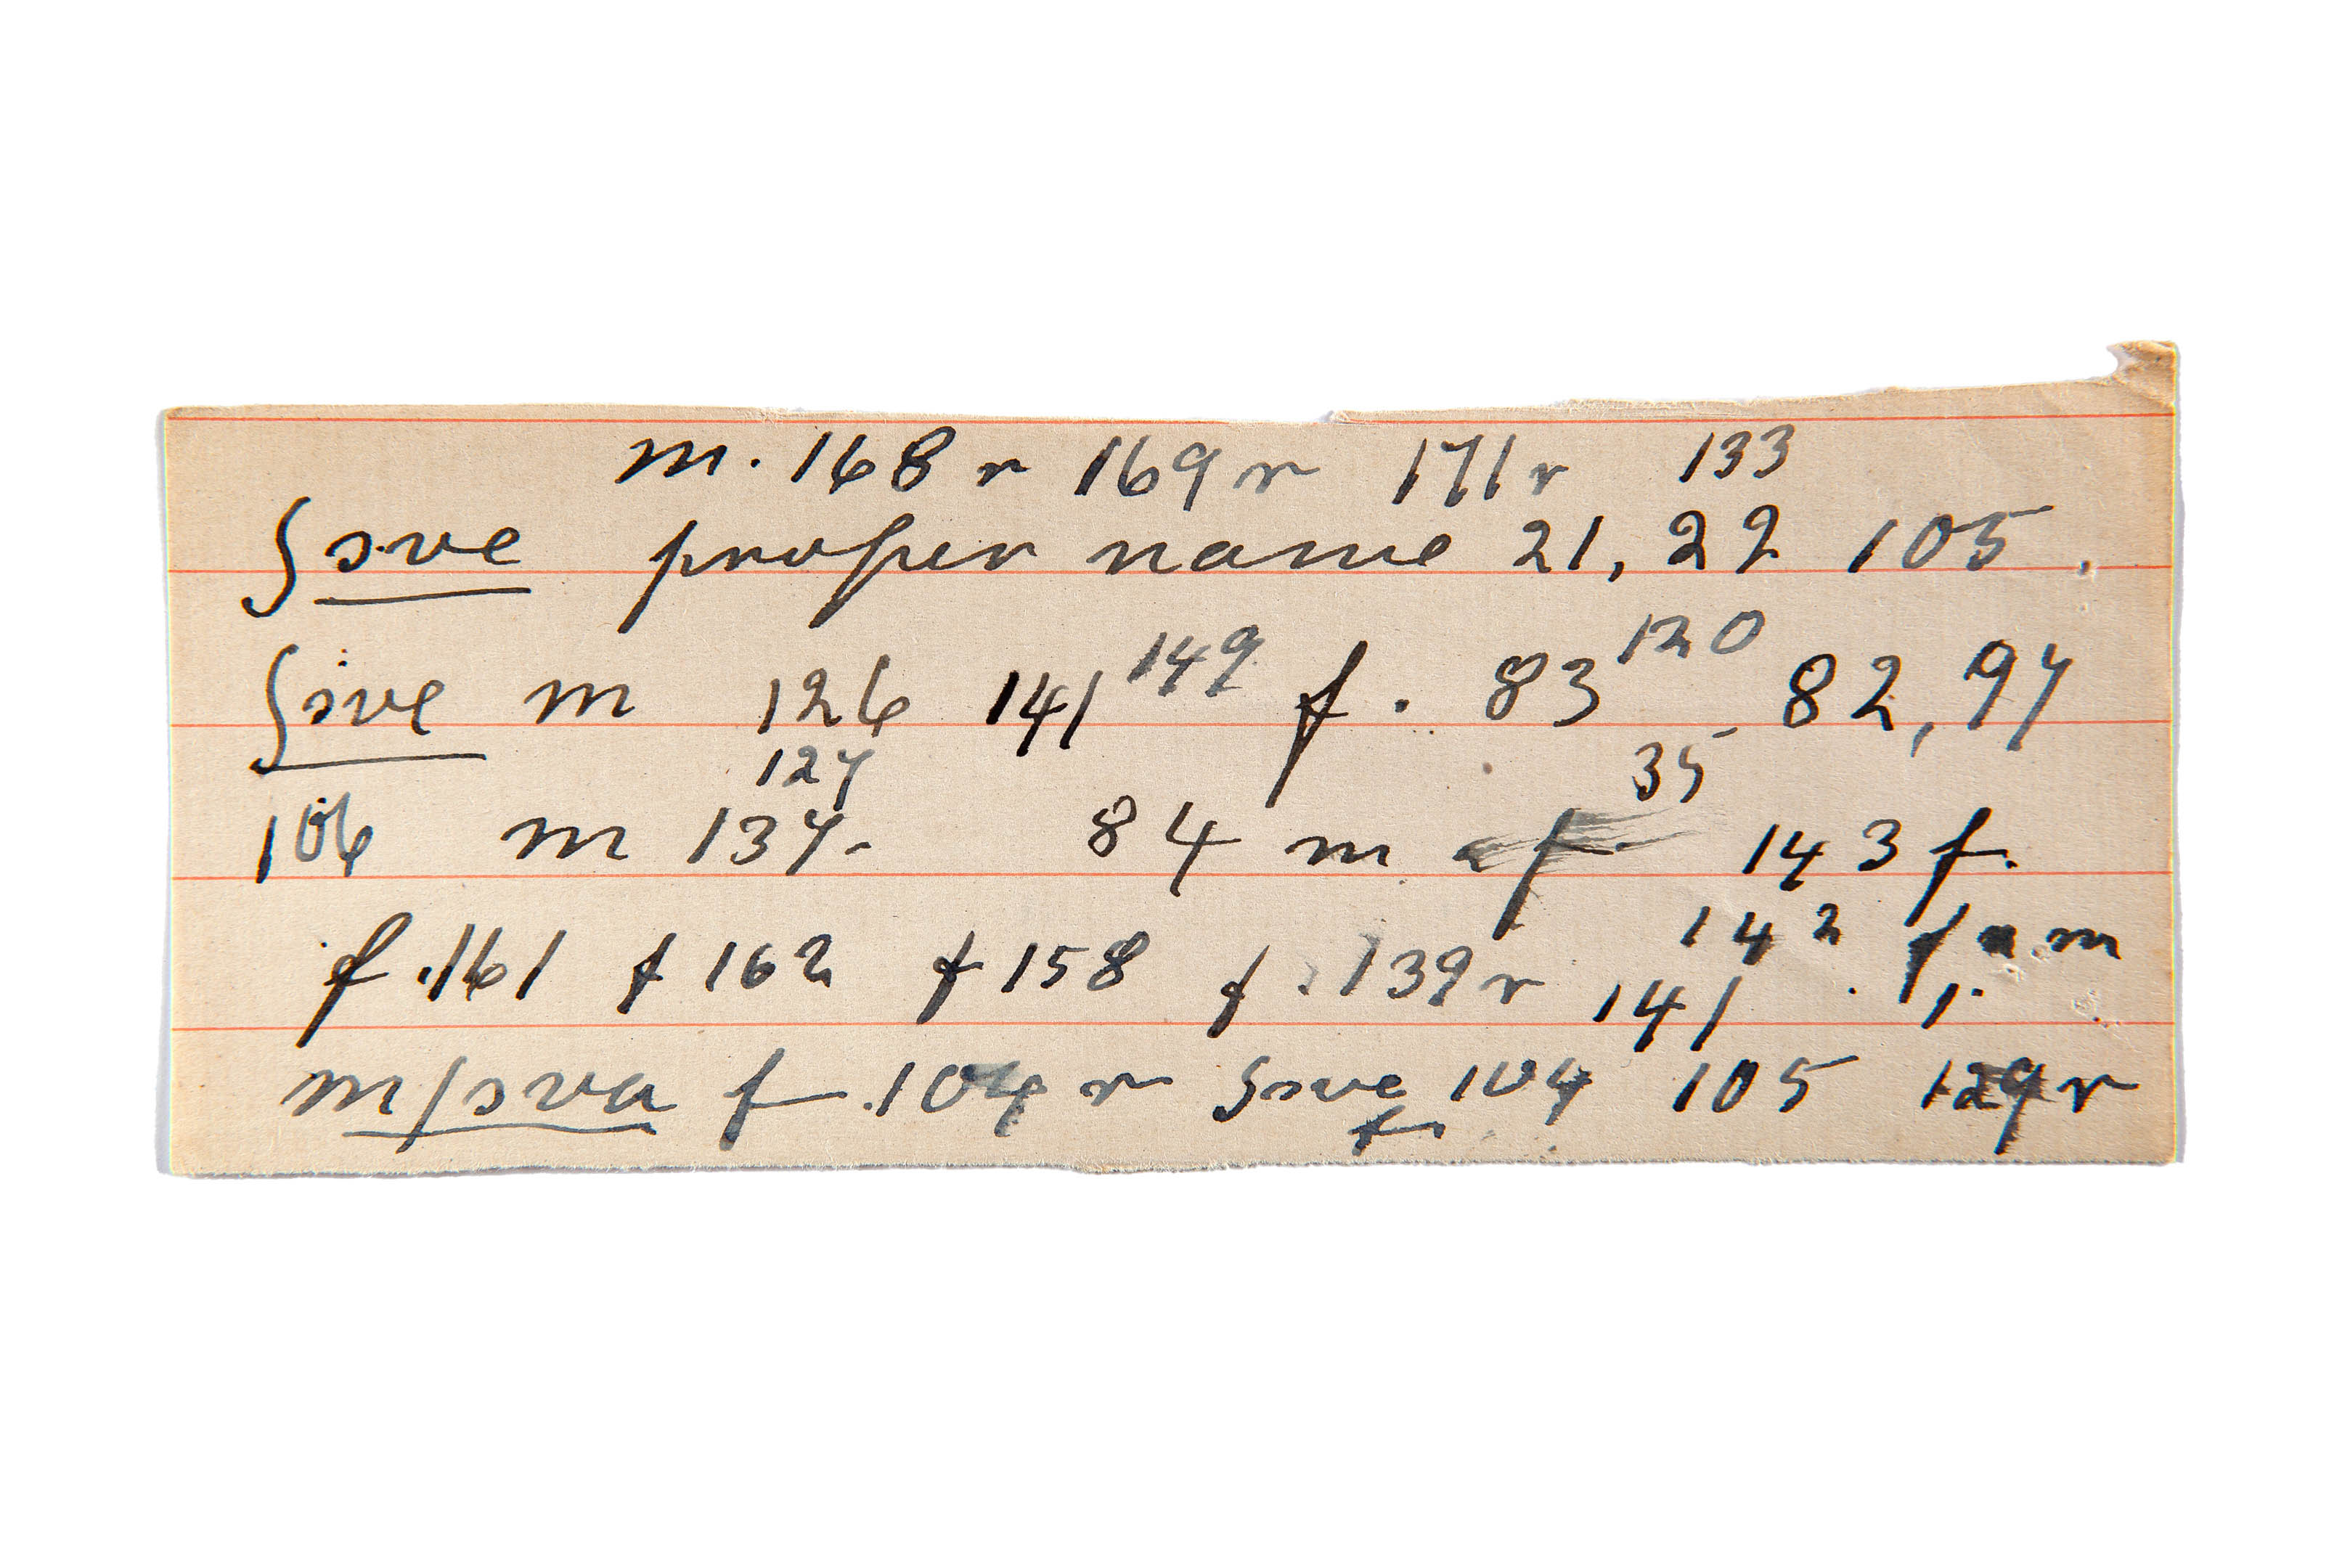 m. 168 r 169 r 171 r 133
proper name 21, 22 105.
149 120
m 126 141 f. 83 82, 97
127 35
106 m 137- 84 m 143 f.
142 f m
f. 161 f 162 f 158 f 139 r 141 f.
f 104 r 104 105 129 r